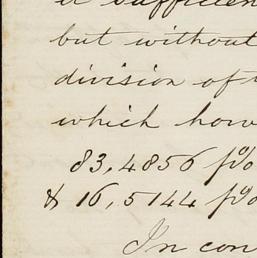 a sufficien
but without
division of
which how
83,4856 p%
& 16,5144 p%
In con